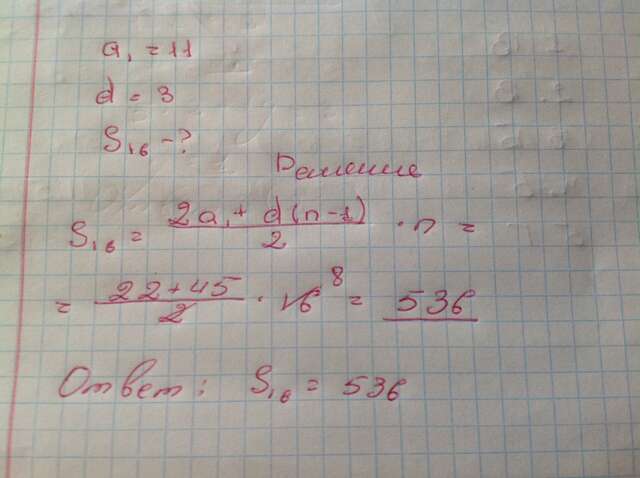 a₁ = 11
d = 3
S₁₆ - ?
Решение
S₁₆ = (2a₁ + d(n-1))/2 · n =
= (22+45)/2 · 16 ⁸ = 536
Ответ: S₁₆ = 536